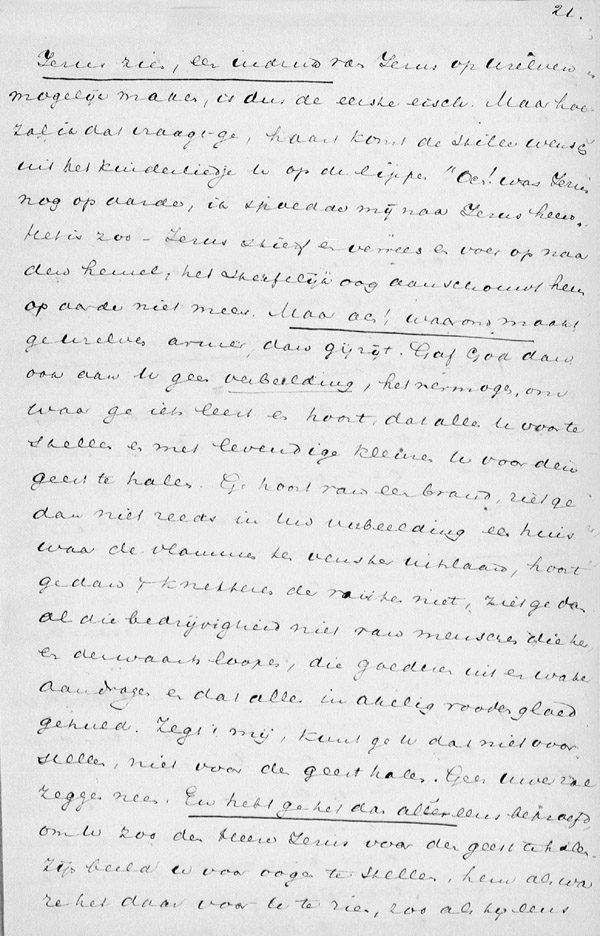 21.
Jezus zien, een indruk van Jezus op Uzelven
mogelijk maken, is dus de eerste eisch. Maar hoe
zal ik dat vraagt ge, haast komt de stille wensch
uit het kinderliedje U op de lippen "Och! was Jezus
nog op aarde, ik spoedde mij naar Jezus heen.
Het is zoo - Jezus stierf en verrees en voer op naar
den hemel, het sterfelijk oog aanschouwt hem
op aarde niet meer. Maar ach!, waarom maakt
ge Uzelven armer, dan gij zijt. Gaf God dan
ook aan U geen verbeelding, het vermogen, om
waar ge iets leest en hoort, dat alles U voor te
stellen en met levendige kleuren U voor den
geest te halen. Ge hoort van een brand, ziet ge
dan niet reeds in Uw verbeelding een huis
waar de vlammen ten venster uitslaan, hoort
ge dan 't knetteren der ruiten niet, ziet ge dan
al die bedrijvigheid niet van menschen die her
en derwaarts loopen, die goederen uit en water
aandragen en dat alles in akelig rooden gloed
gehuld. Zegt 't mij, kunt ge U dat niet voor-
stellen, niet voor den geest halen. Geen Uwer zal
zeggen neen. En hebt ge het dan al eens beproefd,
om U zoo den Heere Jezus voor den geest te halen.
Zijn beeld U voor oogen te stellen, hem als wa-
re het daar voor U te zien, zoo als hij eens